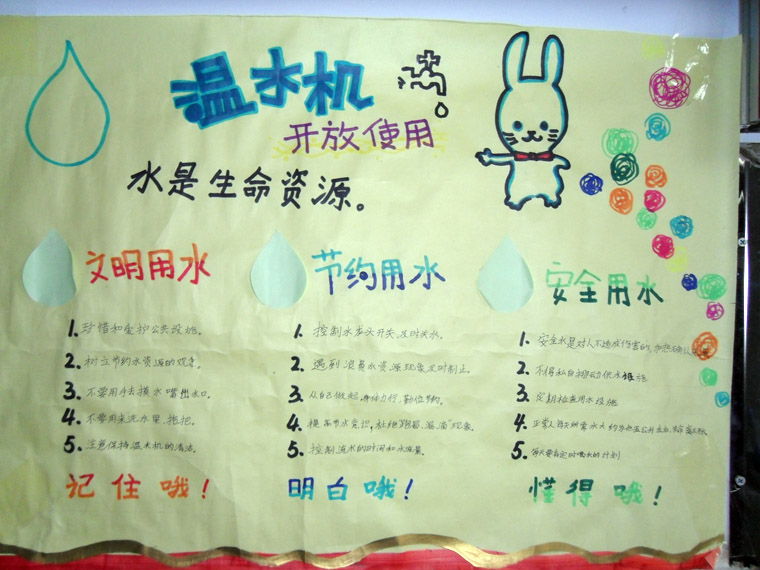 温水机
开放使用
水是生命资源。
文明用水
1. 珍惜和爱护公共设施。
2. 树立节约水资源的观念。
3. 不要用手去摸水嘴出水口。
4. 不要用来洗水果、拖把。
5. 注意保持温水机的清洁。
记住哦！
节约用水
1. 控制水龙头开关、及时关水。
2. 遇到浪费水资源现象及时制止。
3. 从自己做起,身体力行、勤俭节约。
4. 提高节水意识,杜绝“跑冒、滴漏”现象。
5. 控制流水的时间和水流量。
明白哦！
安全用水
1. 安全水是对人不造成伤害的,
2. 不得私自挪动供水设施
3. 定期检查用水设施
4. 正常人每天所需水大约
5. 每天要有定时喝水的计划
懂得哦！